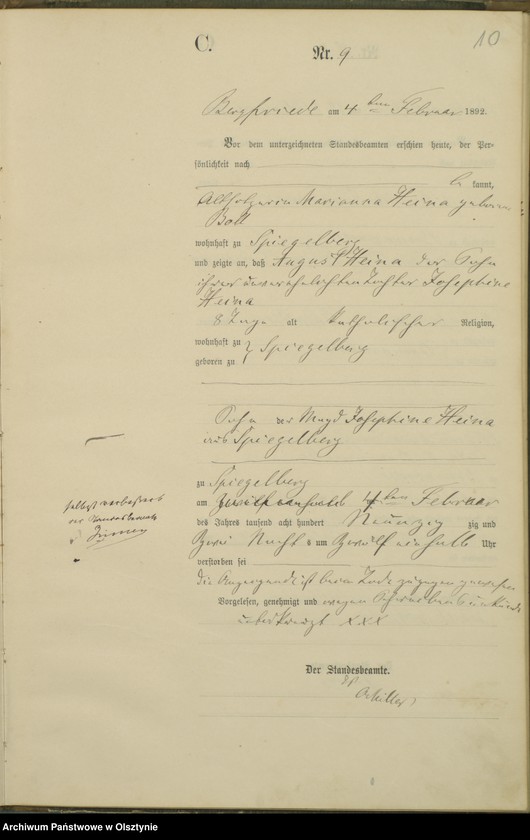 C.
10
Nr. 9
Bergfriede am 4ten Februar 1892.
Vor dem unterzeichneten Standesbeamten erschien heute, der Per-
sönlichkeit nach
kannt,
Marianna Heina geborene
Boll
wohnhaft zu Spiegelberg
und zeigte an, daß August Heina der Sohn
ihrer unverehelichten Tochter Josephine
Heina
8 Tage alt katholischer Religion,
wohnhaft zu } Spiegelberg
geboren zu
Sohn der Magd Josephine Heina
aus Spiegelberg
zu Spiegelberg
am 4ten Februar
des Jahres tausend acht hundert Neunzig zig und
Zwei Nachts um Zwölf einhalb Uhr
verstorben sei
Die Anzeigende ist beim Tode zugegen gewesen
Vorgelesen, genehmigt und wegen Schreibensunkunde
unterkreuzt XXX
Der Standesbeamte.
Archiwum Państwowe w Olsztynie